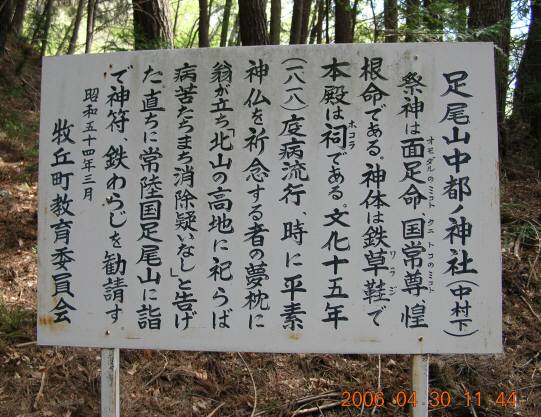 足尾山中都ノ神社(中村下)
祭神は面足命、国常尊、惶
オモダルのミコト クニトコのミコト
根命である。神体は鉄草鞋で
ワラジ
本殿は祠である。文化十五年
ホコラ
(一八一八)度病流行、時に平素
神仏を祈念する者の夢枕に
翁が立ち「北山の高地に祀らば
病苦たちまち消除疑いなし」と告げ
た。直ちに常陸国足尾山に詣
で神符、鉄わらじを勧請す。
昭和五十四年三月
牧丘町教育委員会
2006.04.30 11:44